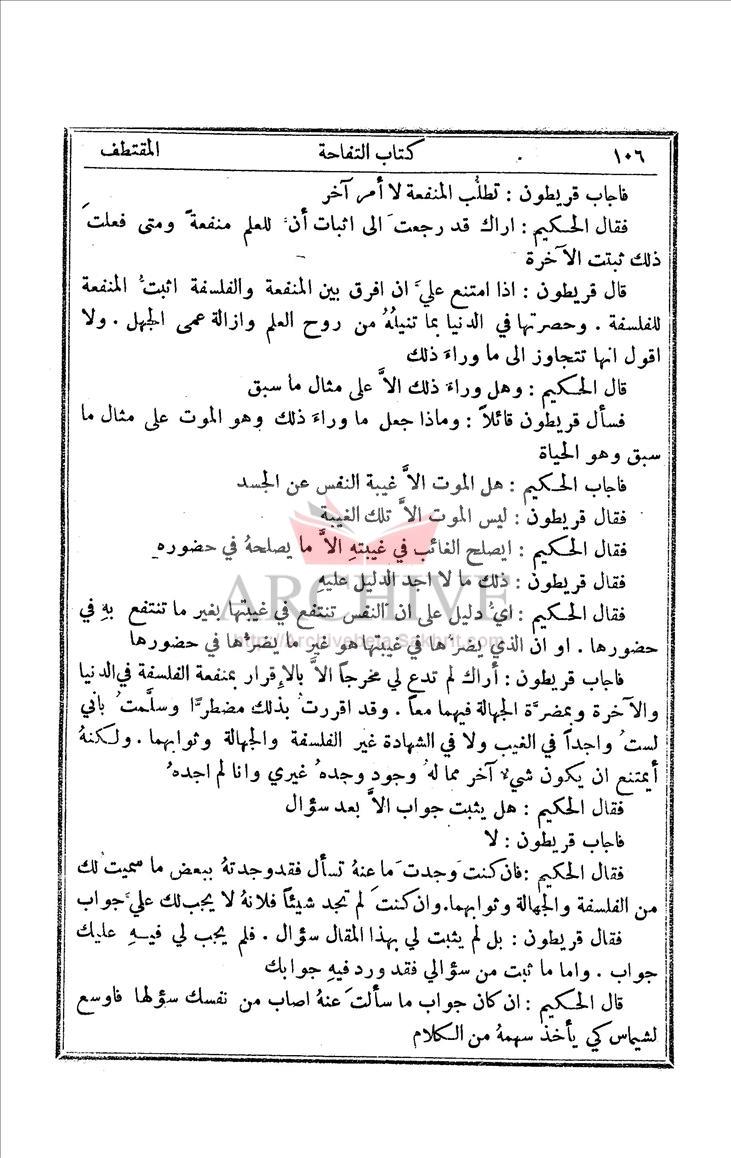 ١٠٦ كتاب التفاحة المقتطف
فاجاب قريطون : تطلُّب المنفعة لا أمر آخر
فقال الحكيم : اراك قد رجعتَ الى اثبات أنَّ للعلم منفعةً ومتى فعلتَ
ذلك ثبتت الآخرة
قال قريطون : اذا امتنع عليَّ ان افرق بين المنفعة والفلسفة اثبتُّ المنفعة
للفلسفة . وحصرتها في الدنيا بما تنيلهُ من روح العلم وازالة عمى الجهل . ولا
اقول انها تتجاوز الى ما وراءَ ذلك
قال الحكيم : وهل وراءَ ذلك الاَّ على مثال ما سبق
فسأل قريطون قائلاً : وماذا جعل ما وراءَ ذلك وهو الموت على مثال ما
سبق وهو الحياة
فاجاب الحكيم : هل الموت الاَّ غيبة النفس عن الجسد
فقال قريطون : ليس الموت الاَّ تلك الغيبة
فقال الحكيم : ايصلح الغائب في غيبتهِ الاَّ ما يصلحهُ في حضوره
فقال قريطون : ذلك ما لا اجد الدليل عليهِ
فقال الحكيم : ايُّ دليل على ان النفس تنتفع في غيبتها بغير ما تنتفع بهِ في
حضورها . او ان الذي يضرُّها في غيبتها هو غير ما يضرُّها في حضورها
فاجاب قريطون : أراك لم تدع لي مخرجاً الاَّ بالإقرار بمنفعة الفلسفة في الدنيا
والآخرة وبمضرَّة الجهالة فيهما معاً . وقد اقررتُ بذلك مضطرًّا وسلَّمتُ باني
لستُ واجداً في الغيب ولا في الشهادة غير الفلسفة والجهالة وثوابهما . ولكنهُ
أيمتنع ان يكون شيءٌ آخر مما لهُ وجود وجدهُ غيري وانا لم اجدهُ
فقال الحكيم : هل يثبت جواب الاَّ بعد سؤال
فاجاب قريطون : لا
فقال الحكيم : فان كنتَ وجدتَ ما عنهُ تسأل فقد وجدتهُ ببعض ما سميتُ لك
من الفلسفة والجهالة وثوابهما . وان كنتَ لم تجد شيئاً فلانهُ لا يجب لك عليَّ جواب
فقال قريطون : بل لم يثبت لي بهذا المقال سؤال . فلم يجب لي فيهِ عليك
جواب . واما ما ثبت من سؤالي فقد ورد فيهِ جوابك
قال الحكيم : ان كان جواب ما سألتَ عنهُ اصاب من نفسك سؤلها فاوسع
لشيماس كي يأخذ سهمهُ من الكلام
ARCHIVE
http://Archivebeta.Sakhrit.com